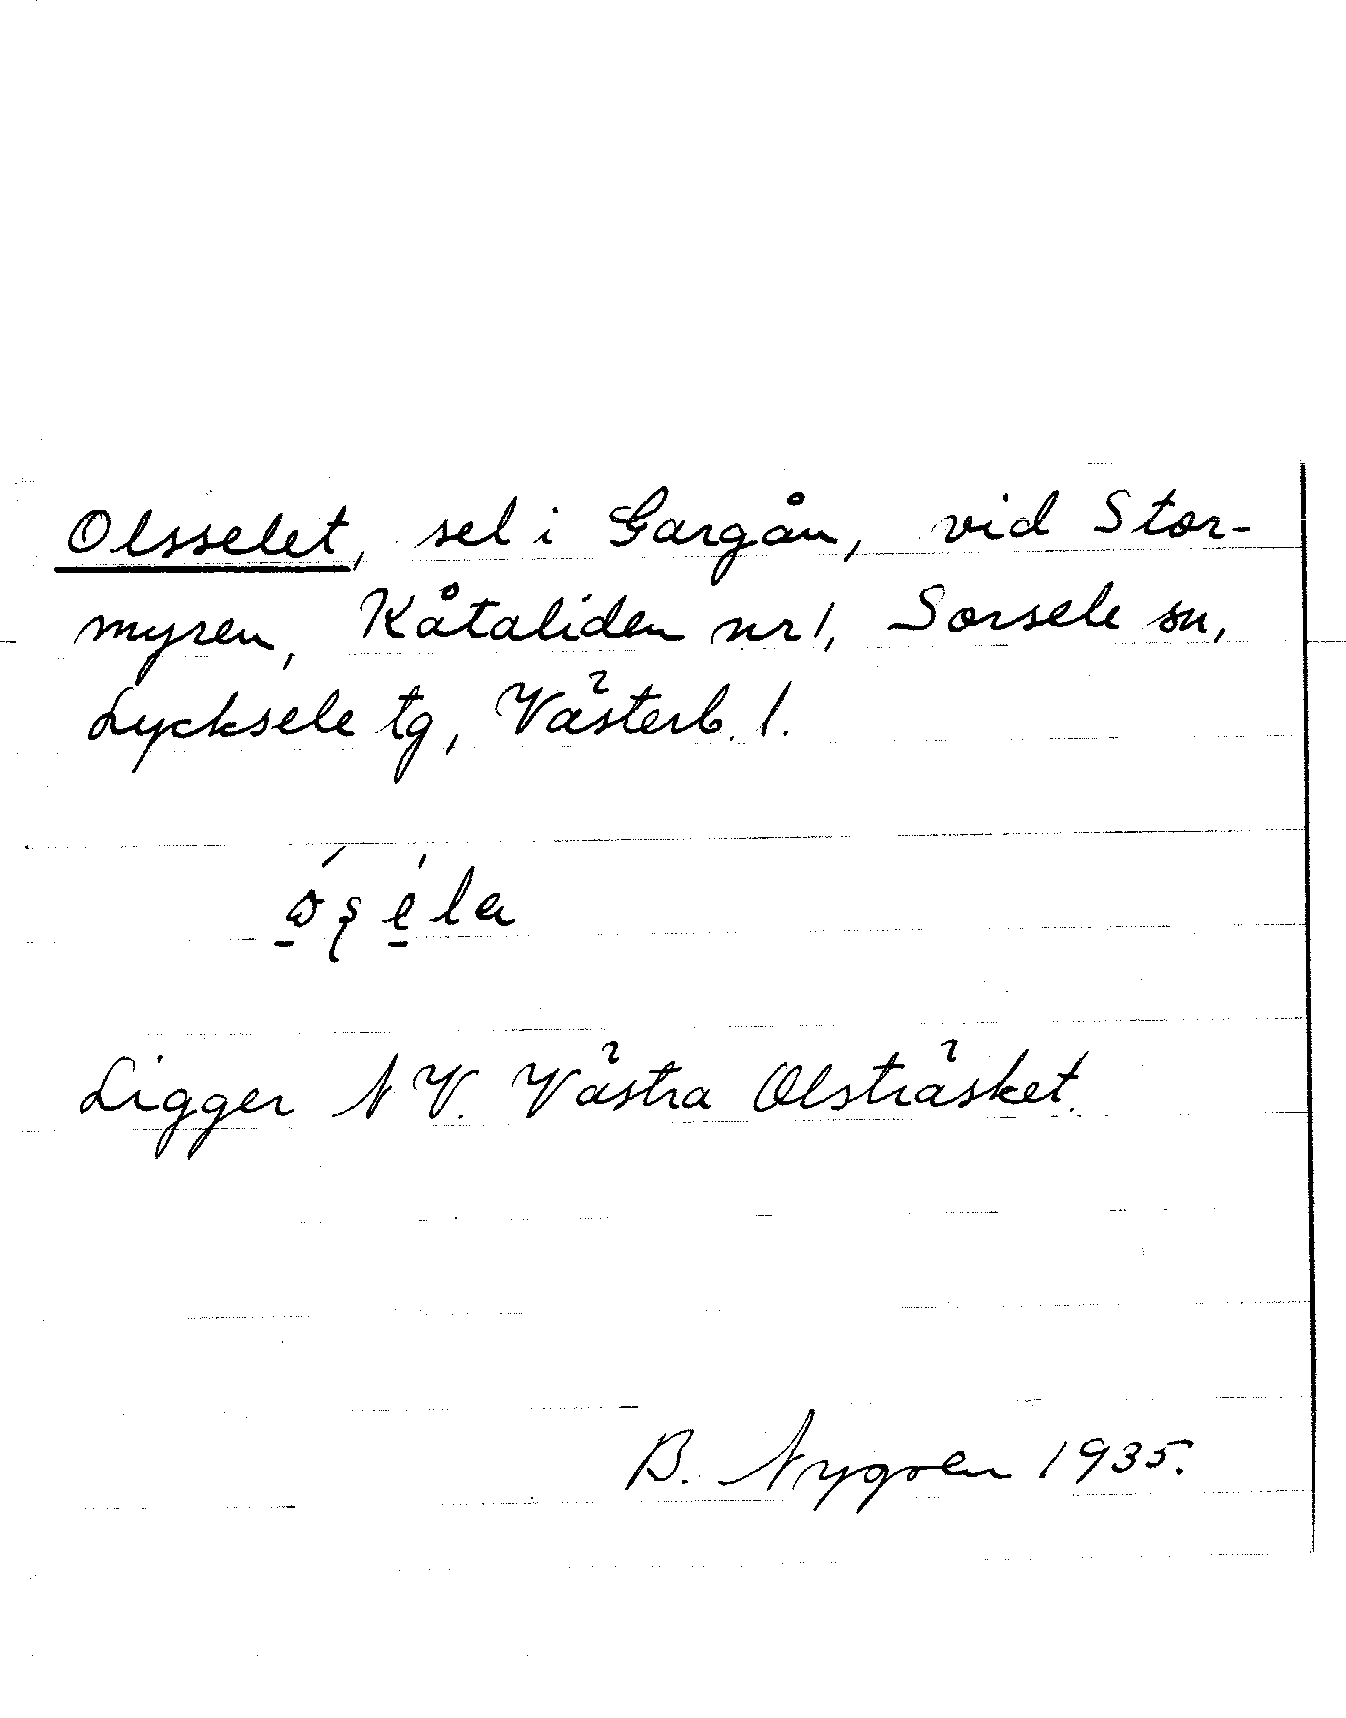 Olsselet, sel i Gargån, vid Stor-
myren, Kåtaliden nr 1, Sorsele sn,
Lycksele tg, Västerb. l.
Ligger NV. Västra Olsträsket.
B. Nygren 1935.